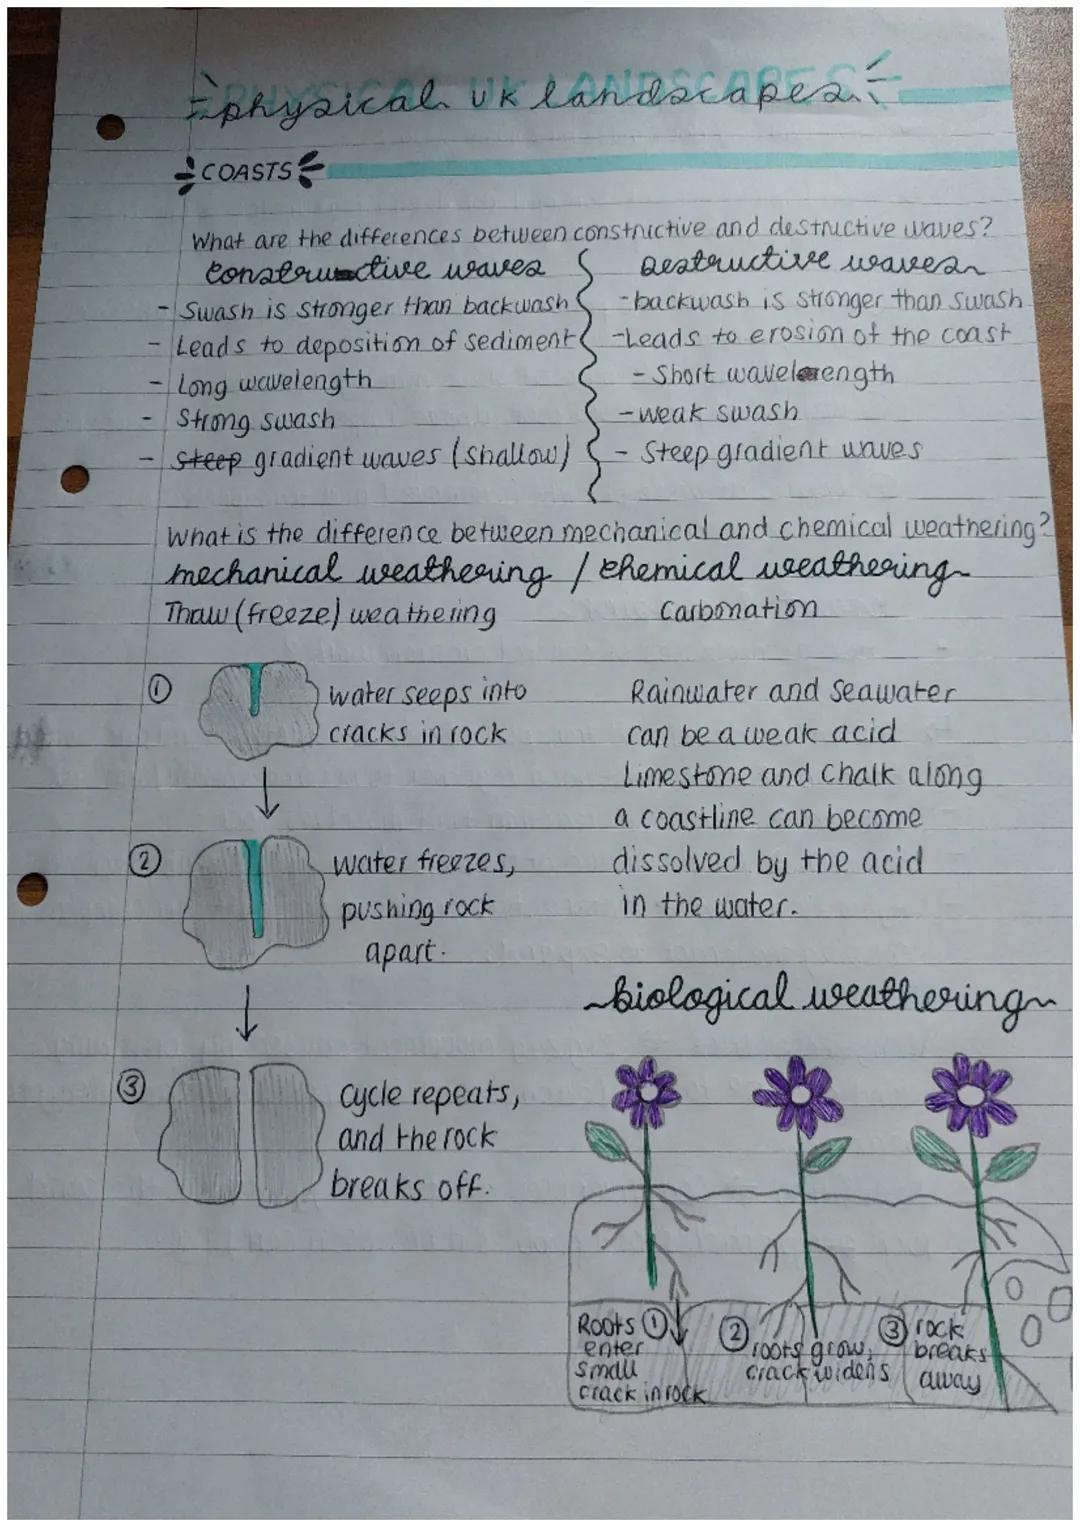 physical UK landscapes
COASTS
What are the differences between constructive and destructive waves?
constructive waves
- Swash is stronger than backwash
- Leads to deposition of sediment
- Long wavelength
- Strong swash
- steep gradient waves (shallow)
Destructive waves
- backwash is stronger than swash
- Leads to erosion of the coast
- Short wavelength
- weak swash
- Steep gradient waves
What is the difference between mechanical and chemical weathering?
mechanical weathering / chemical weathering
Thaw (freeze) weathering
① water seeps into
cracks in rock
② water freezes,
pushing rock
apart.
③ cycle repeats,
and the rock
breaks off.
Carbonation
Rainwater and Seawater
can be a weak acid
Limestone and Chalk along
a coastline can become
dissolved by the acid
in the water.
biological weathering
Roots ①
enter
small
crack in rock
② roots grow,
crack widens
③ rock
breaks
away